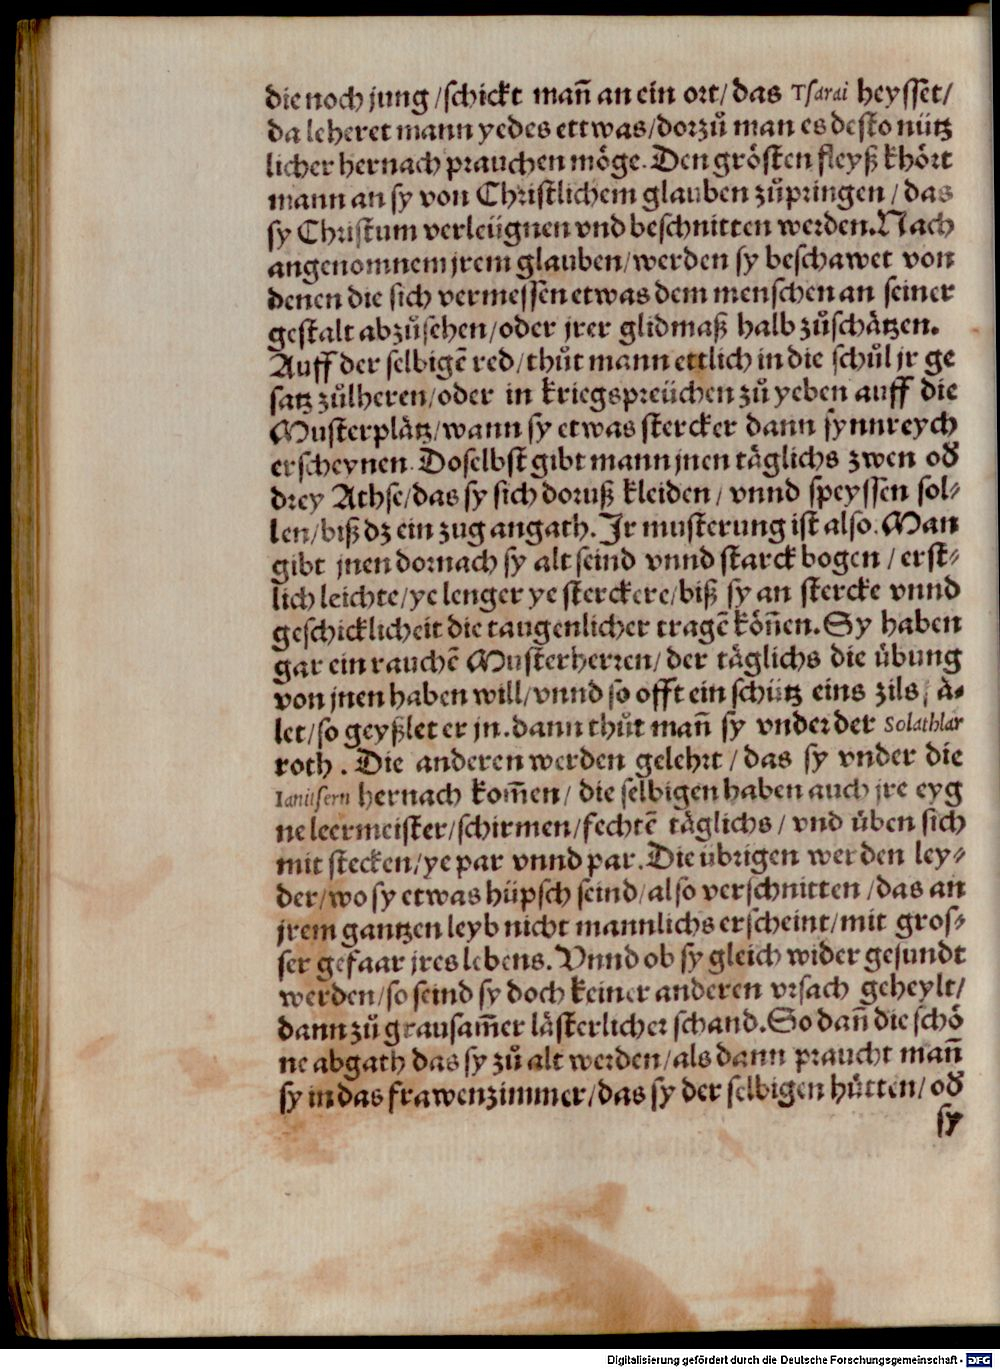 die noch jung /schickt mañ an ein ort/ das Tsarai heysset/
da leheret mann yedes ettwas/dorzů man es desto nütz
licher hernach prauchen möge. Den grösten fleyß khört
mann an sy von Christlichem glauben zůpringen / das
sy Christum verleügnen vnd beschnitten werden. Nach
angenomnem jrem glauben/werden sy beschawet von
denen die sich vermessen etwas dem menschen an seiner
gestalt abzůsehen/oder jrer glidmaß halb zůschätzen.
Auff der selbigē red/thůt mann ettlich in die schůl jr ge
satz zůlheren/oder in kriegspreüchen zů yeben auff die
Musterplätz/wann sy etwas stercker dann synnreych
erscheynen. Doselbst gibt mann jnen täglichs zwen oð
drey Athse/das sy sich doruß kleiden / vnnd speyssen sol⸗
len/biß dz ein zug angath. Jr musterung ist also. Man
gibt jnen dornach sy alt seind vnnd starck bogen / erst⸗
lich leichte/ye lenger ye sterckere/biß sy an stercke vnnd
geschicklicheit die taugenlicher tragē köñen. Sy haben
gar ein rauchē Musterherren/ der täglichs die übung
von jnen haben will/vnnd so offt ein schütz eins zils, ä⸗
let/so geyßlet er jn. dann thůt mañ sy vnder der Solathlar
roth . Die anderen werden gelehrt / das sy vnder die
Ianitsern hernach kom̃en/ die selbigen haben auch jre eyg
ne leermeister/schirmen/fechtē täglichs / vnd üben sich
mit stecken/ye par vnnd par. Die übrigen werden ley⸗
der/wo sy etwas hüpsch seind/also verschnitten /das an
jrem gantzen leyb nicht mannlichs erscheint/mit gros⸗
ser gefaar jres lebens. Vnnd ob sy gleich wider gesundt
werden/so seind sy doch keiner anderen vrsach geheylt/
dann zů grausam̃er lästerlicher schand. So dañ die schö
ne abgath das sy zů alt werden/als dann praucht mañ
sy in das frawenzimmer/das sy der selbigen hütten/ oð
sy
Digitalisierung gefördert durch die Deutsche Forschungsgemeinschaft - DFG